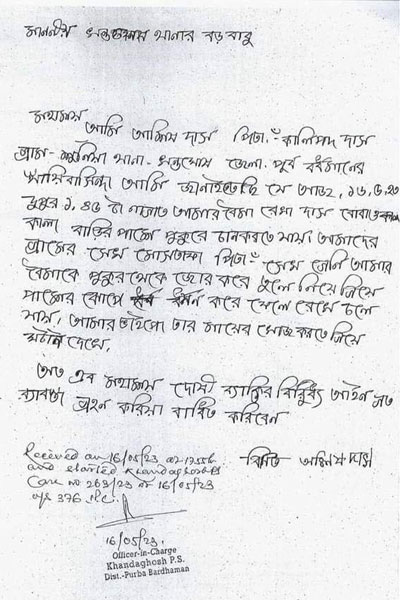 মাননীয় খন্ডঘোষ থানার বড়বাবু
মহাশয়
আমি আশিষ দাস পিতা:- কালিপদ দাস
গ্রাম - থানা - খন্ডঘোষ জেলা. পূর্ব বর্ধমানের
আমি জানাইতেছি যে আজ, ১৬.৫.২৩
দুপুর ১.৪৫ টা নাগাত আমার বৌমা রেখা দাস বোবাও
কালা বাড়ির পাশে পুকুরে চান করতে যায়। আমাদের
গ্রামের সেখ মোসতাফা পিতা:- সেখ আমার
বৌমাকে পুকুর থেকে জোর করে তুলে নিয়ে গিয়ে
পাশের ঝোপে ধর্ষন করে ফেলে রেখে চলে
যায়, আমার ভাইপো তার মায়ের খোঁজ করতে গিয়ে
ঘটনা দেখে,
অত এব মহাশয় দোষী ব্যাক্তির বিরুদ্ধে আইন মত
ব্যাবস্থা গ্রহন করিয়া বাধিত করিবেন
বিনিত আশিষ দাস
Received on 16/05/23 at
and started Khandaghosh P.S
Case no 263/23 dt 16/05/23
u/s 376 IPC.
16/05/23.
Officer-in-Charge
Khandaghosh P.S.
Dist.-Purba Bardhaman